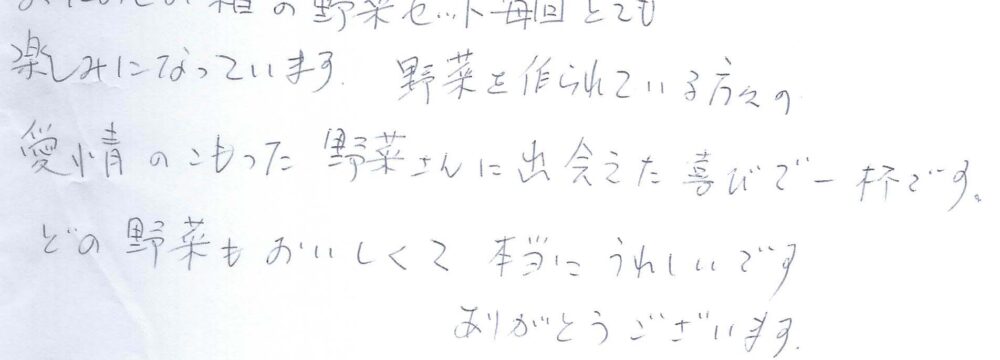 箱の野菜セット毎回とても
楽しみになっています。野菜を作られている方々の
愛情のこもった野菜さんに出会えた喜びで一杯です。
どの野菜もおいしくて本当にうれしいです
ありがとうございます。